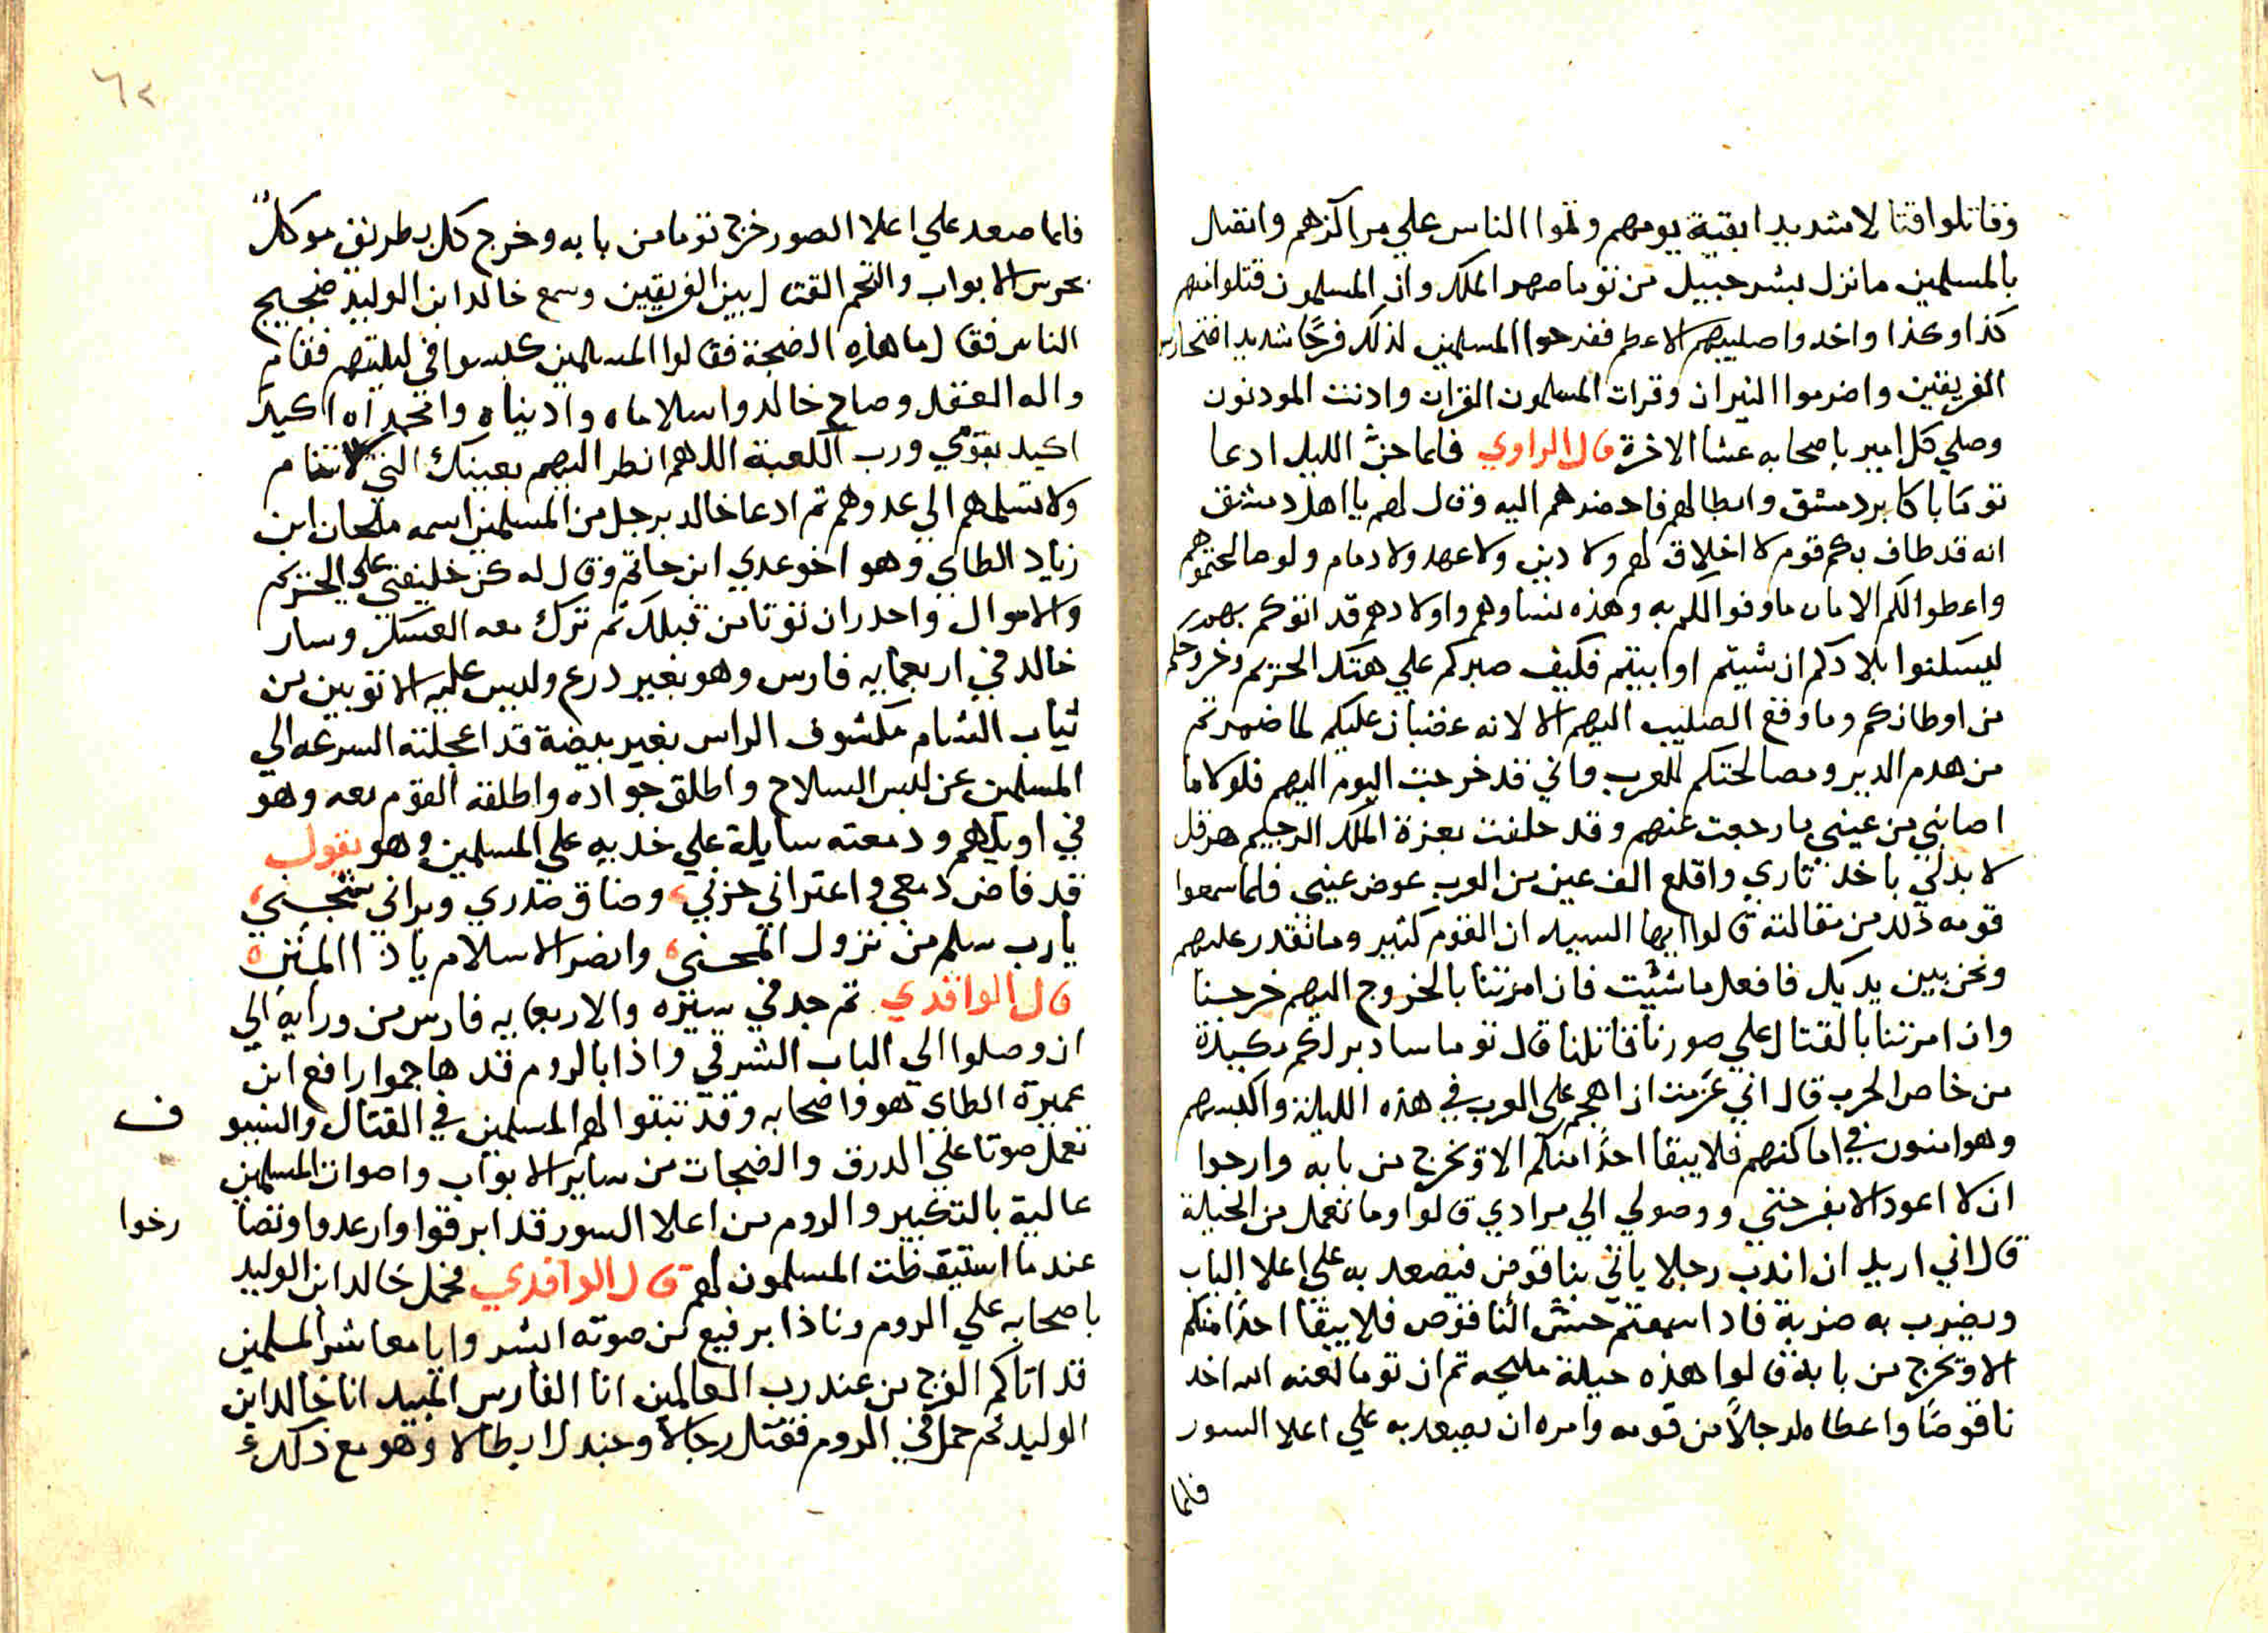 وقاتلوا قتالا شديدا بقية يومهم وتموا الناس علي مراكزهم واتصل
بالمسلمين ما نزل بشرحبيل من توما صهر الملك وان المسلمون قتلوا منهم
كذا وكذا واخدوا صليبهم الاعظم ففرحوا المسلمين لذلك فرحًا شديدا
الفريقين واضرموا النيران وقرات المسلمون القران وادنت المودنون
وصلي كل امير باصحابه عشا الاخرة قال الراوي فلما جنّ الليل ادعا
توما باكابر دمشق وابطالهم فاحضرهم اليه وقال لهم يا اهل دمشق
انه قد طاف بكم قوم لا اخلاق لهم ولا دين ولا عهد ولا دمام ولو صالحتموهم
واعطوا لكم الامان ما وفوا لكم به وهذه نساوهم واولادهم قد اتوكم بهم
ليسكنوا بلادكم ان شيتم او ابيتم فكيف صبركم علي هتك الحريم وخروجكم
من اوطانكم وما وقع الصليب اليهم الا لانه غضبان عليكم لما ضمرتم
من هدم الدير ومصالحتكم للعرب واني قد خرجت اليوم اليهم فلولا ما
اصابني من عيني ما رجعت عنهم وقد حلفت بعزة الملك الرحيم هرقل
لا بد لي باخد ثاري واقلع الف عين من العرب عوض عيني فلما سمعوا
قومه ذلك من مقالته قالوا ايها السيد ان القوم كثير وما نقدر عليهم
ونحن بين يديك فافعل ما شئيت فان امرتنا بالخروج اليهم خرجنا
وان امرتنا بالقتال علي صورنا قاتلنا قال توما سادبر لكم مكيدة
من خاص الحرب قال اني عزمت ان اهجم علي العرب في هذه الليلة واكبسهم
وهم امنون في اماكنهم فلا يبقا احدًا منكم الا وتخرج من بابه وارجوا
ان لا اعود الا بفرحتي ووصولي الي مرادي قالوا وما تعمل من الحيلة
قال اني اريد ان اندب رجلا ياتي بناقوص فيصعد به علي اعلا الباب
ويضرب به ضربة فادا سمعتم حس الناقوص فلا يبقا احدًا منكم
الا وتخرج من بابه قالوا هذه حيلة مليحه ثم ان توما لعنه الله اخد
ناقوصًا واعطاه لرجلاً من قومه وامره ان يصعد به علي اعلا السور
فلما
٦٢
فلما صعد علي اعلا الصور خرج توما من بابه وخرج كل بطريق موكلٌ
بحرس الابواب والتحم القتال بين الفريقين وسمع خالد ابن الوليد ضجيج
الناس فقال ما هذه الضجة فقالوا المسلمين كبسوا في ليلتهم فقام
واله العقل وصاح خالد واسلاماه وادنياه وامحمداه اكيد
اكيد بقومي ورب الكعبة اللهم انظر اليهم بعينك التي لا تنام
ولا تسلمهم الي عدوهم تم ادعا خالد برجل من المسلمين اسمه ملحان ابن
زياد الطاي وهو اخو عدي ابن حاتم وقال له كن خليفتي علي الحريم
والاموال واحدران توتا من قبلك تم ترك معه العسكر وسار
خالد في اربعمايه فارس وهو بغير درع وليس عليه الا توبين من
ثياب الشام مكشوف الراس بغير بيضة قد اعجلته السرعه الي
المسلمين عن لبس السلاح واطلق جواده واطلقه القوم معه وهو
في اويلهم ودمعته سايلة علي خديه علي المسلمين وهو يقول
قد فاض دمعي واعتراني حزني، وضاق صدري وبراني شجني،
يا رب سلم من نزول المحني، وانصر الاسلام يا ذا المنن
قال الواقدي تم جد في سيره والاربعمايه فارس من ورايه الي
ان وصلوا الي الباب الشرقي واذا بالروم قد هاجموا رافع ابن
عميرة الطاي هو واصحابه وقد تبتوا لهم المسلمين في القتال والسيو
ف
تعمل صوتا علي الدرق والضجات من ساير الابواب واصوات المسلمين
عالية بالتكبير والروم من اعلا السور قد ابرقوا وارعدوا وتصا
رخوا
عندما استيقظت المسلمون لهم قال الواقدي فحمل خالد ابن الوليد
باصحابه علي الروم ونادا برفيع من صوته ابشروا يا معاشر المسلمين
قد اتاكم الفرج من عند رب العالمين انا الفارس المبيد انا خالد ابن
الوليد تم حمل في الروم فقتل رجالا وجندل ابطالا وهو مع ذلك